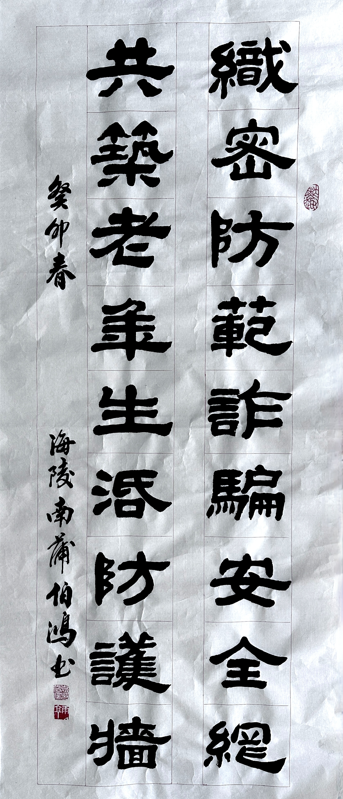 織密防範詐騙安全網
共築老年生活防護墻
癸卯春
海陵南蒲伯鴻书